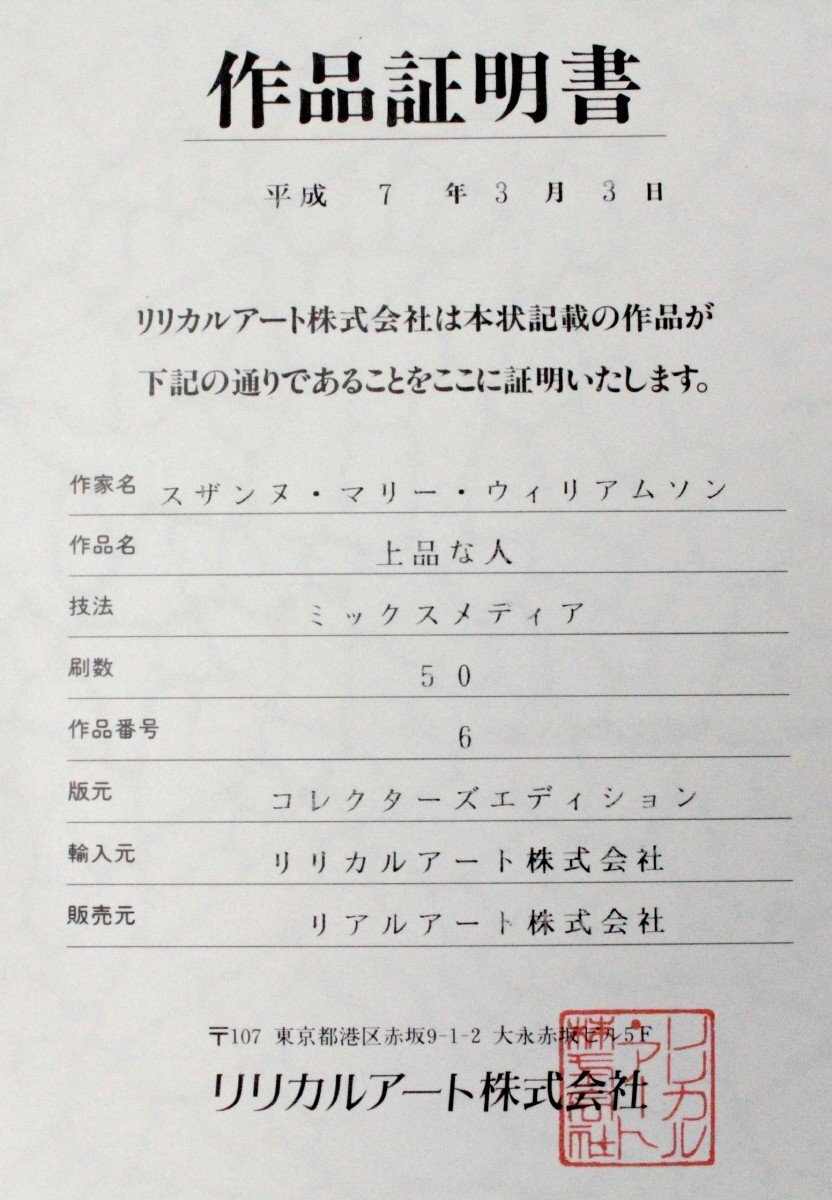 作品証明書
平成 7 年 3 月 3 日
リリカルアート株式会社は本状記載の作品が
下記の通りであることをここに証明いたします。
作家名 スザンヌ・マリー・ウィリアムソン
作品名 上品な人
技法 ミックスメディア
刷数 50
作品番号 6
版元 コレクターズエディション
輸入元 リリカルアート株式会社
販売元 リアルアート株式会社
〒107 東京都港区赤坂9-1-2 大永赤坂ビル5F
リリカルアート株式会社
リリカル
・アート
株式会社